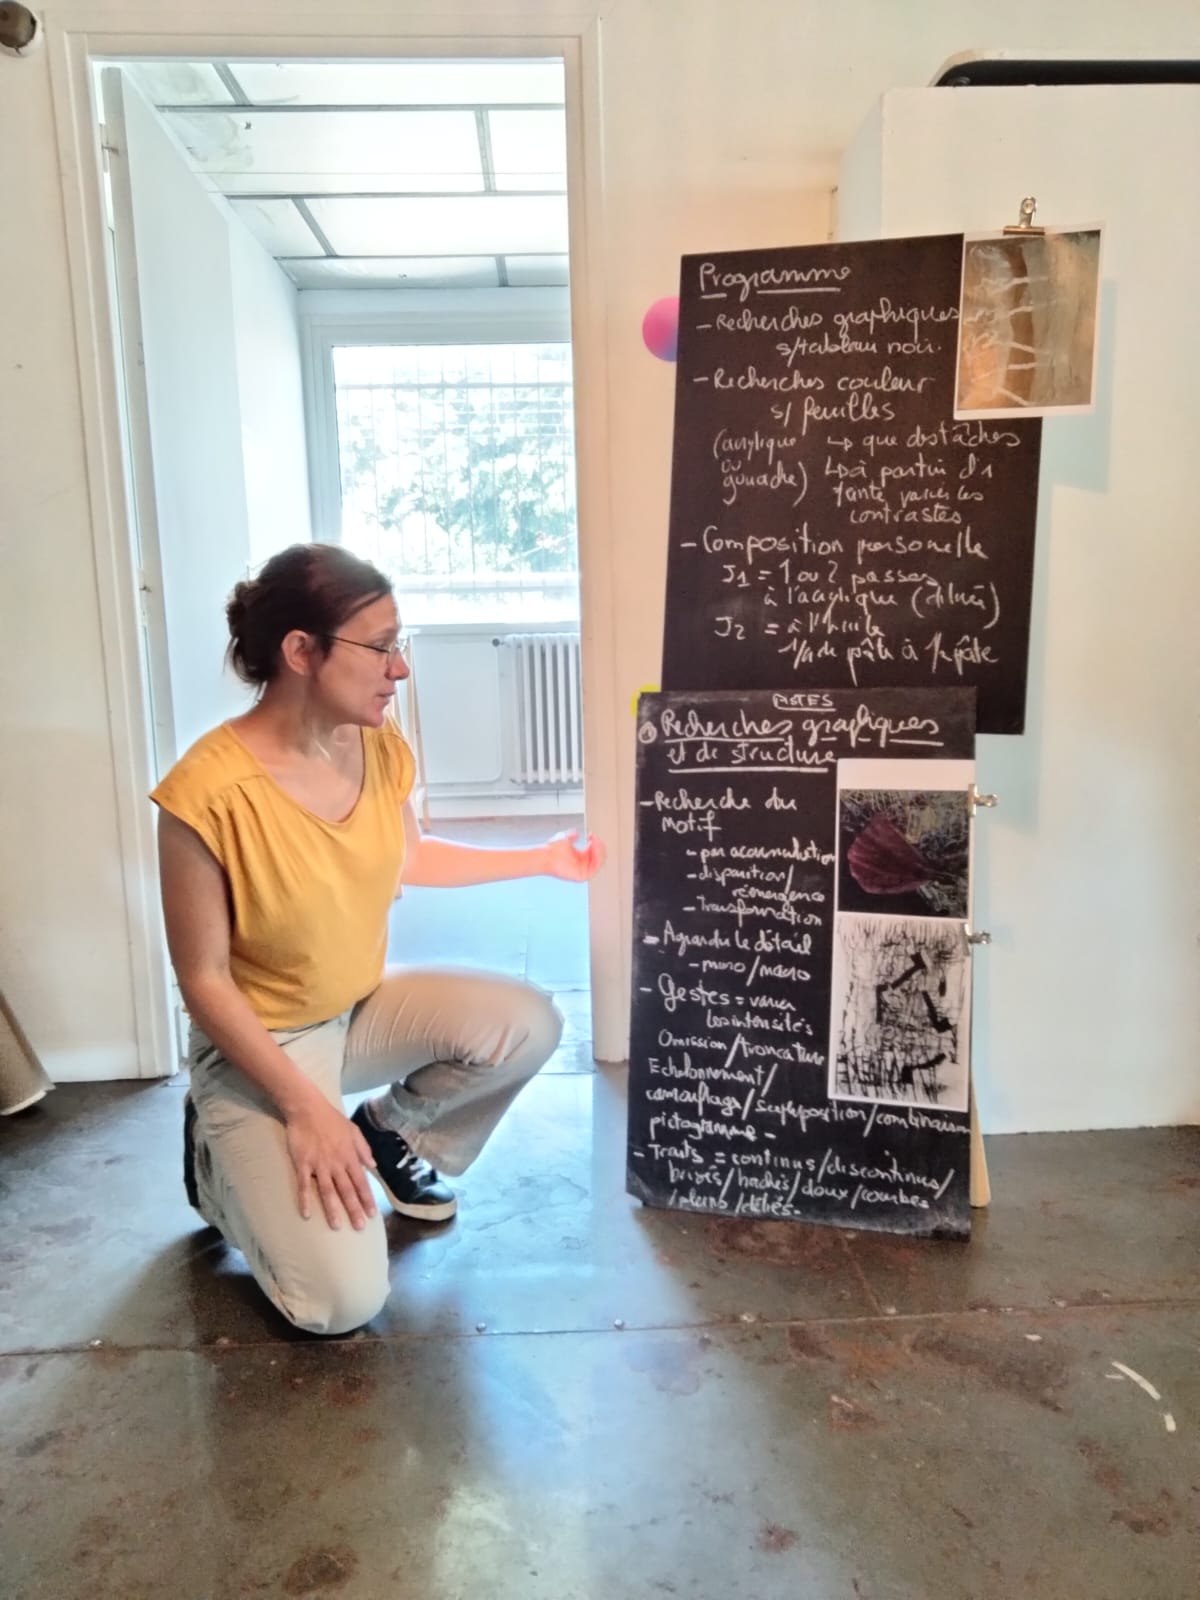 Programme
- Recherches graphiques
s/tableau noir.
- Recherches couleur
s/ feuilles
(acrylique ↳ que des tâches
ou
gouache) ↳ à partir d'1
teinte, varier les
contrastes
- Composition personelle
J1 = 1 ou 2 passes
à l'acrylique (diluée)
J2 = à l'huile
pâte à pâte
PISTES
Recherches graphiques
et de structure
- Recherche du
Motif
- par accumulation
- disparition/
réémergence
- Transformation
- Agrandir le détail
- micro/macro
- Gestes = varier
les intensités
Omission/troncature
Echelonnement/
camouflage/superposition/combinaison
pictogramme -
- Traits = continus/discontinus/
brisés/hachés/doux/courbes
/pleins/déliés.